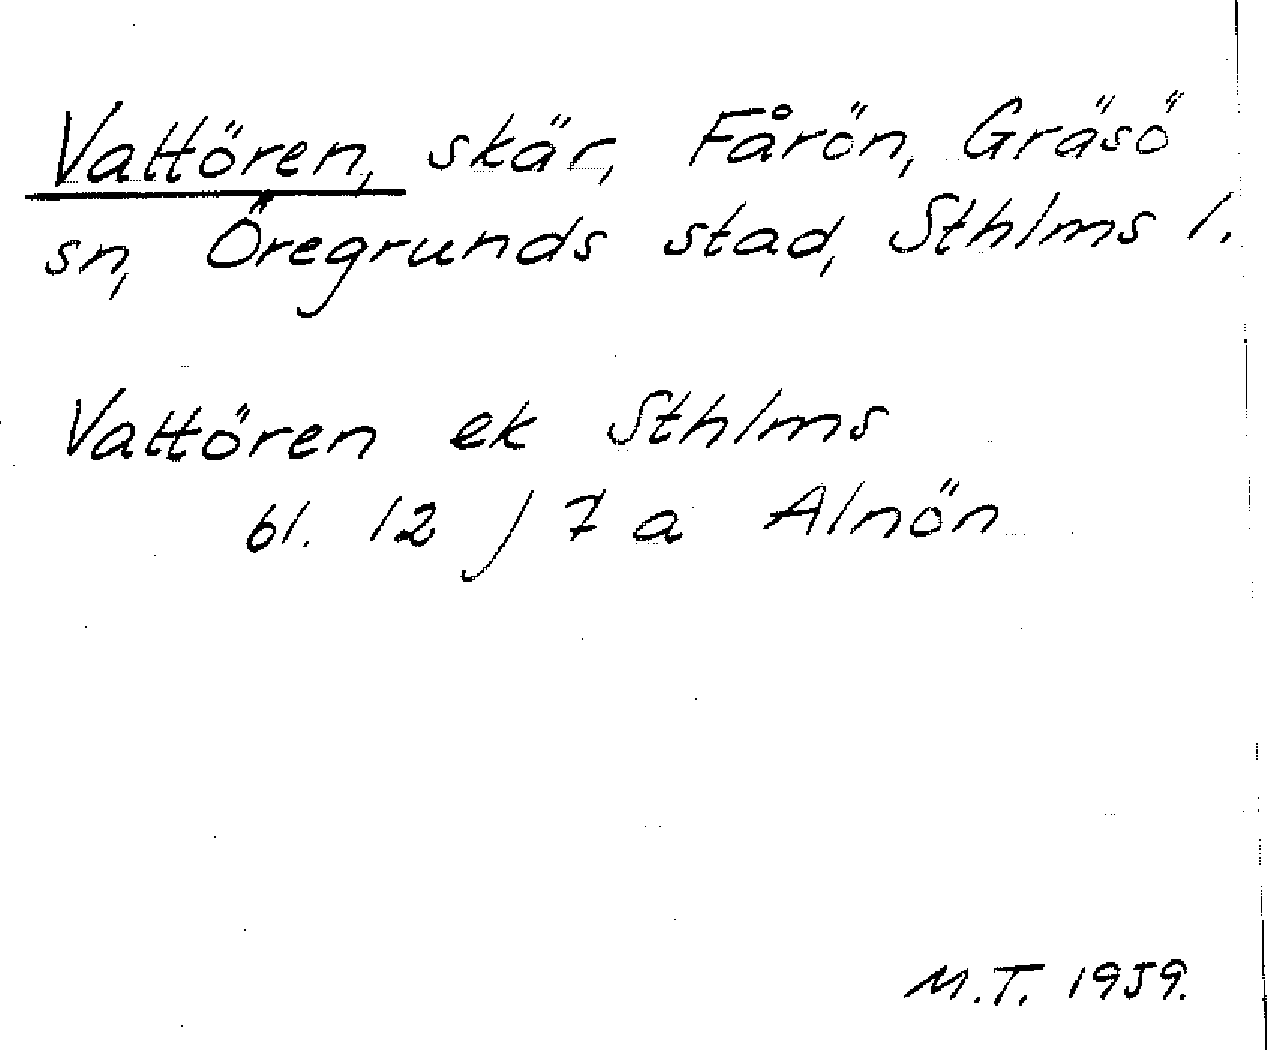 Vattören, skär, Fårön, Gräsö
sn, Öregrunds stad, Sthlms l.
Vattören ek Sthlms
bl. 12 J 7 a Alnön
M.T. 1959.